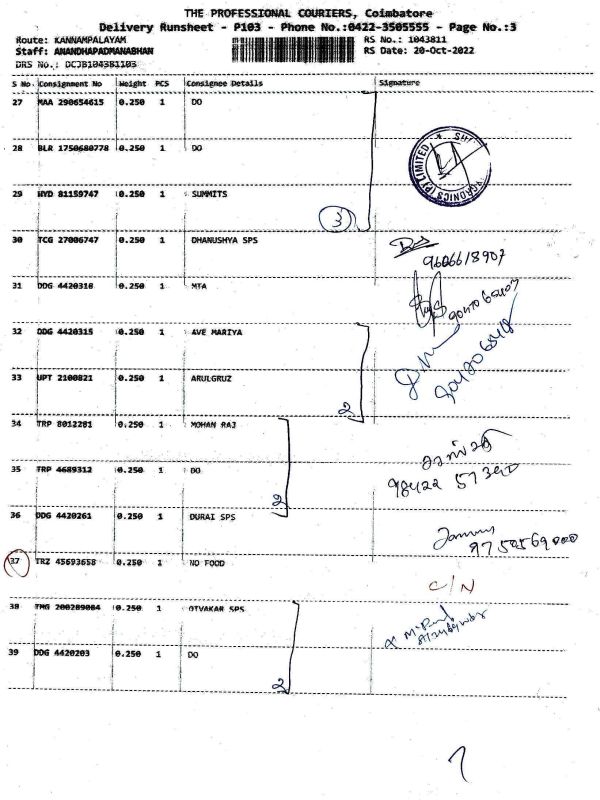 THE PROFESSIONAL COURIERS, Coimbatore
Delivery Runsheet - P103 - Phone No.:0422-3505555 - Page No.:3
Route: KANNAMPALAYAM RS No.: 1043811
Staff: ANANDHAPADMANABHAN RS Date: 20-Oct-2022
DRS No.: DCJB104381103
S No Consignment No Weight PCS Consignee Details Signature
27 MAA 290654615 0.250 1 DO
28 BLR 1750680778 0.250 1 DO
LIMITED
29 HYD 81159747 0.250 1 SUMMITS
3
30 TCG 27006747 0.250 1 DHANUSHYA SPS
9606618907
31 DDG 4420318 0.250 1 MTA
32 DDG 4420315 0.250 1 AVE MARIYA
33 UPT 2100821 0.250 1 ARULGRUZ
2
34 TRP 8012281 0.250 1 MOHAN RAJ
35 TRP 4689312 0.250 1 DO
2
36 DDG 4420261 0.250 1 DURAI SPS
37 TRZ 45693658 0.250 1 NO FOOD
C/N
38 TMG 200289084 0.250 1 DIVAKAR SPS
39 DDG 4420203 0.250 1 DO
2
7